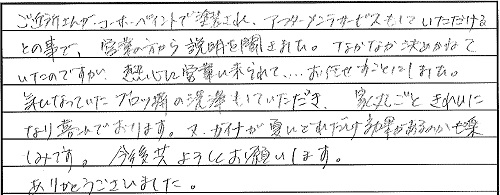 ご近所さんがユーコーペイントで塗装され、アフターメンテサービスもしていただける
との事で、営業の方から説明を聞きました。なかなか決めかねて
いたのですが、熱心に営業に来られて…お任せすることにしました。
気になっていたブロック塀の洗浄もしていただき、家丸ごときれいに
なり喜んでおります。又、ガイナが夏にどれだけ効果があるのかも楽
しみです。今後共よろしくお願いします。
ありがとうございました。